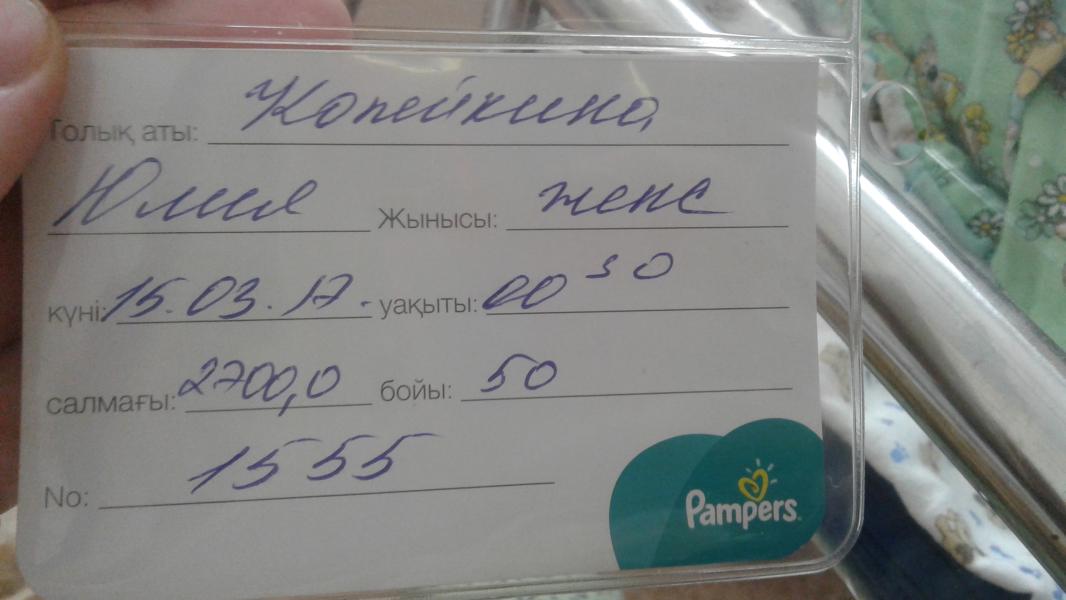 Толық аты: Копейкина
Юлия Жынысы: жена
күні: 15.03.17. уақыты: 00 30
салмағы: 2700,0 бойы: 50
No: 1555
Pampers